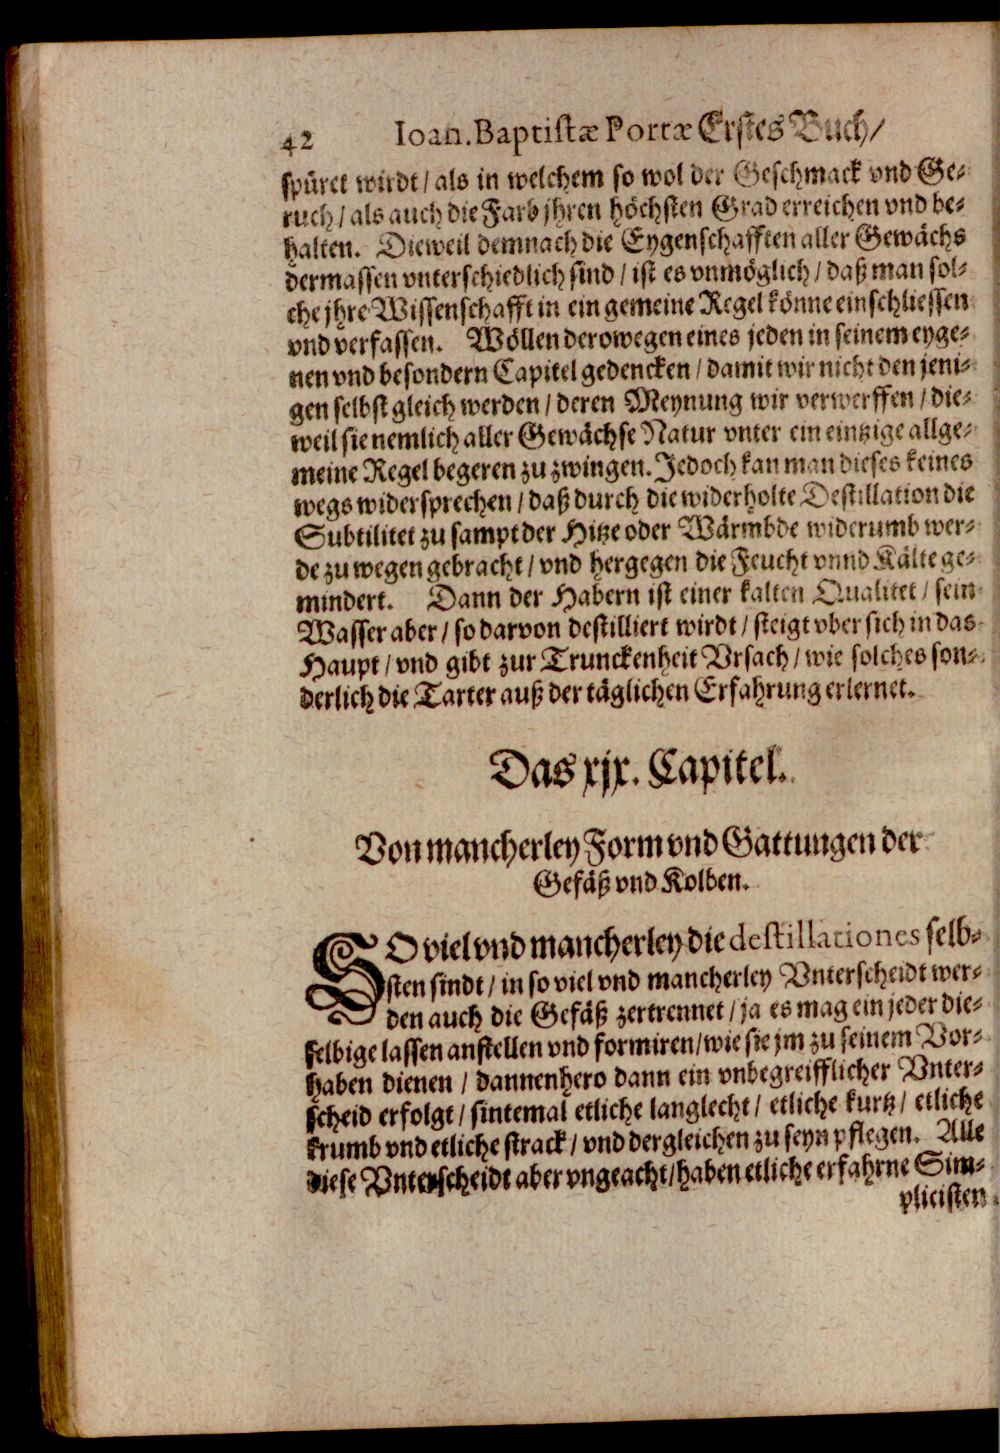 42 Ioan. Baptistæ Portæ Erstes Buch/
spüret wirdt / als in welchem so wol der Geschmack vnd Ge-
ruch / als auch die Farb jhren höchsten Grad erreichen vnd be-
halten. Dieweil demnach die Eygenschafften aller Gewächs
dermassen vnterschiedlich sind / ist es vnmöglich / daß man sol-
che jhre Wissenschafft in ein gemeine Regel könne einschliessen
vnd verfassen. Wöllen derowegen eines jeden in seinem eyge-
nen vnd besondern Capitel gedencken / damit wir nicht den jeni-
gen selbst gleich werden / deren Meynung wir verwerffen / die-
weil sie nemlich aller Gewächse Natur vnter ein eintzige allge-
meine Regel begeren zu zwingen. Jedoch kan man dieses keines
wegs widersprechen / daß durch die widerholte Destillation die
Subtilitet zu sampt der Hitze oder Wärmbde widerumb wer-
de zu wegen gebracht / vnd hergegen die Feucht vnnd Kälte ge-
mindert. Dann der Habern ist einer kalten Qualitet / sein
Wasser aber / so darvon destilliert wirdt / steigt vber sich in das
Haupt / vnd gibt zur Trunckenheit Vrsach / wie solches son-
derlich die Tarter auß der täglichen Erfahrung erlernet.
Das xjx. Capitel.
Von mancherley Form vnd Gattungen der
Gefäß vnd Kolben.
SO viel vnd mancherley die destillationes selb-
sten sindt / in so viel vnd mancherley Vnterscheidt wer-
den auch die Gefäß zertrennet / ja es mag ein jeder die-
selbige lassen anstellen vnd formiren / wie sie jm zu seinem Vor-
haben dienen / dannenhero dann ein vnbegreifflicher Vnter-
scheid erfolgt / sintemal etliche langlecht / etliche kurtz / etliche
krumb vnd etliche strack / vnd dergleichen zu seyn pflegen. Alle
diese Vnterscheidt aber vngeacht / haben etliche erfahrne Sim-
plicisten